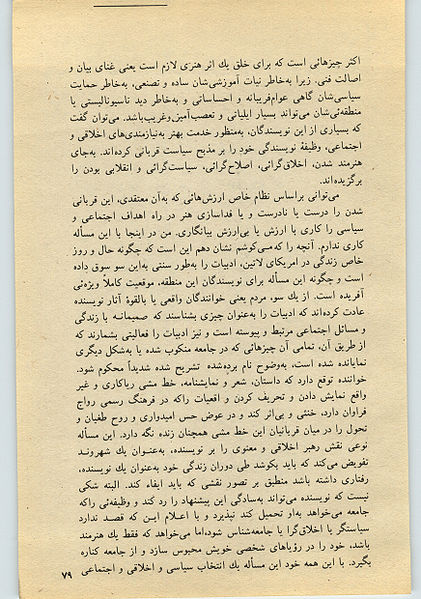 اکثر چیزهائی است که برای خلق یك اثر هنری لازم است یعنی غنای بیان و
اصالت فنی. زیرا به‌خاطر نیات آموزشی‌شان ساده و تصنعی، به‌خاطر حمایت
سیاسی‌شان گاهی عوام‌فریبانه و احساساتی و به‌خاطر دید ناسیونالیستی یا
منطقه‌ئی‌شان می‌تواند بسیار ایلیاتی و تعصب‌آمیز وغریب‌باشد. می‌توان گفت
که بسیاری از این نویسندگان، به‌منظور خدمت بهتر به‌نیازمندی‌های اخلاقی و
اجتماعی، وظیفهٔ نویسندگی خود را بر مذبح سیاست قربانی کرده‌اند. به‌جای
هنرمند شدن، اخلاق‌گرائی، اصلاح‌گرائی، سیاست‌گرائی و انقلابی بودن را
برگزیده‌اند.
می‌توانی براساس نظام خاص ارزش‌هائی که به‌آن معتقدی، این قربانی
شدن را درست یا نادرست و یا فداسازی هنر در راه اهداف اجتماعی و
سیاسی را کاری با ارزش یا بی‌ارزش بیانگاری. من در اینجا با این مسأله
کاری ندارم. آنچه را که‌می‌کوشم نشان دهم این است که چگونه حال و روز
خاص زندگی در امریکای لاتین، ادبیات را به‌طور سنتی به‌این سو سوق داده
است و چگونه این مسأله برای نویسندگان این منطقه، موقعیت کاملاً ویژه‌ئی
آفریده است. از یك سو، مردم یعنی خوانندگان واقعی یا بالقوهٔ آثار نویسنده
عادت کرده‌اند که ادبیات را به‌عنوان چیزی بشناسند که صمیمانه با زندگی
و مسائل اجتماعی مرتبط و پیوسته است و نیز ادبیات را فعالیتی بشمارند که
از طریق آن، تمامی آن چیزهائی که در جامعه منکوب شده یا به‌شکل دیگری
نمایانده شده است، به‌وضوح نام برده‌شده تشریح شده شدیداً محکوم شود.
خواننده توقع دارد که داستان، شعر و نمایشنامه، خط مشی ریاکاری و غیر
واقع نمایش دادن و تحریف کردن و اقعیات راکه در فرهنگ رسمی رواج
فراوان دارد، خنثی و بی‌اثر کند و در عوض حس امیدواری و روح طغیان و
تحول را در میان قربانیان این خط مشی همچنان زنده نگه دارد. این مسأله
نوعی نقش رهبر اخلاقی و معنوی را بر نویسنده، به‌عنوان یك شهروند
تفویض می‌کند که باید بکوشد طی دوران زندگی خود به‌عنوان یك نویسنده،
رفتاری داشته باشد منطبق بر تصور نقشی که باید ایفاء کند. البته شکی
نیست که نویسنده می‌تواند به‌سادگی این پیشنهاد را رد کند و وظیفه‌ئی راکه
جامعه می‌خواهد به‌او تحمیل کند نپذیرد و با اعلام این که قصد ندارد
سیاستگر یا اخلاق‌گرا یا جامعه‌شناس شود،اما می‌خواهد که فقط یك هنرمند
باشد، خود را در رؤیاهای شخصی خویش محبوس سازد و از جامعه کناره
بگیرد. با این همه خود این مسأله یك انتخاب سیاسی و اخلاقی و اجتماعی
۷۹